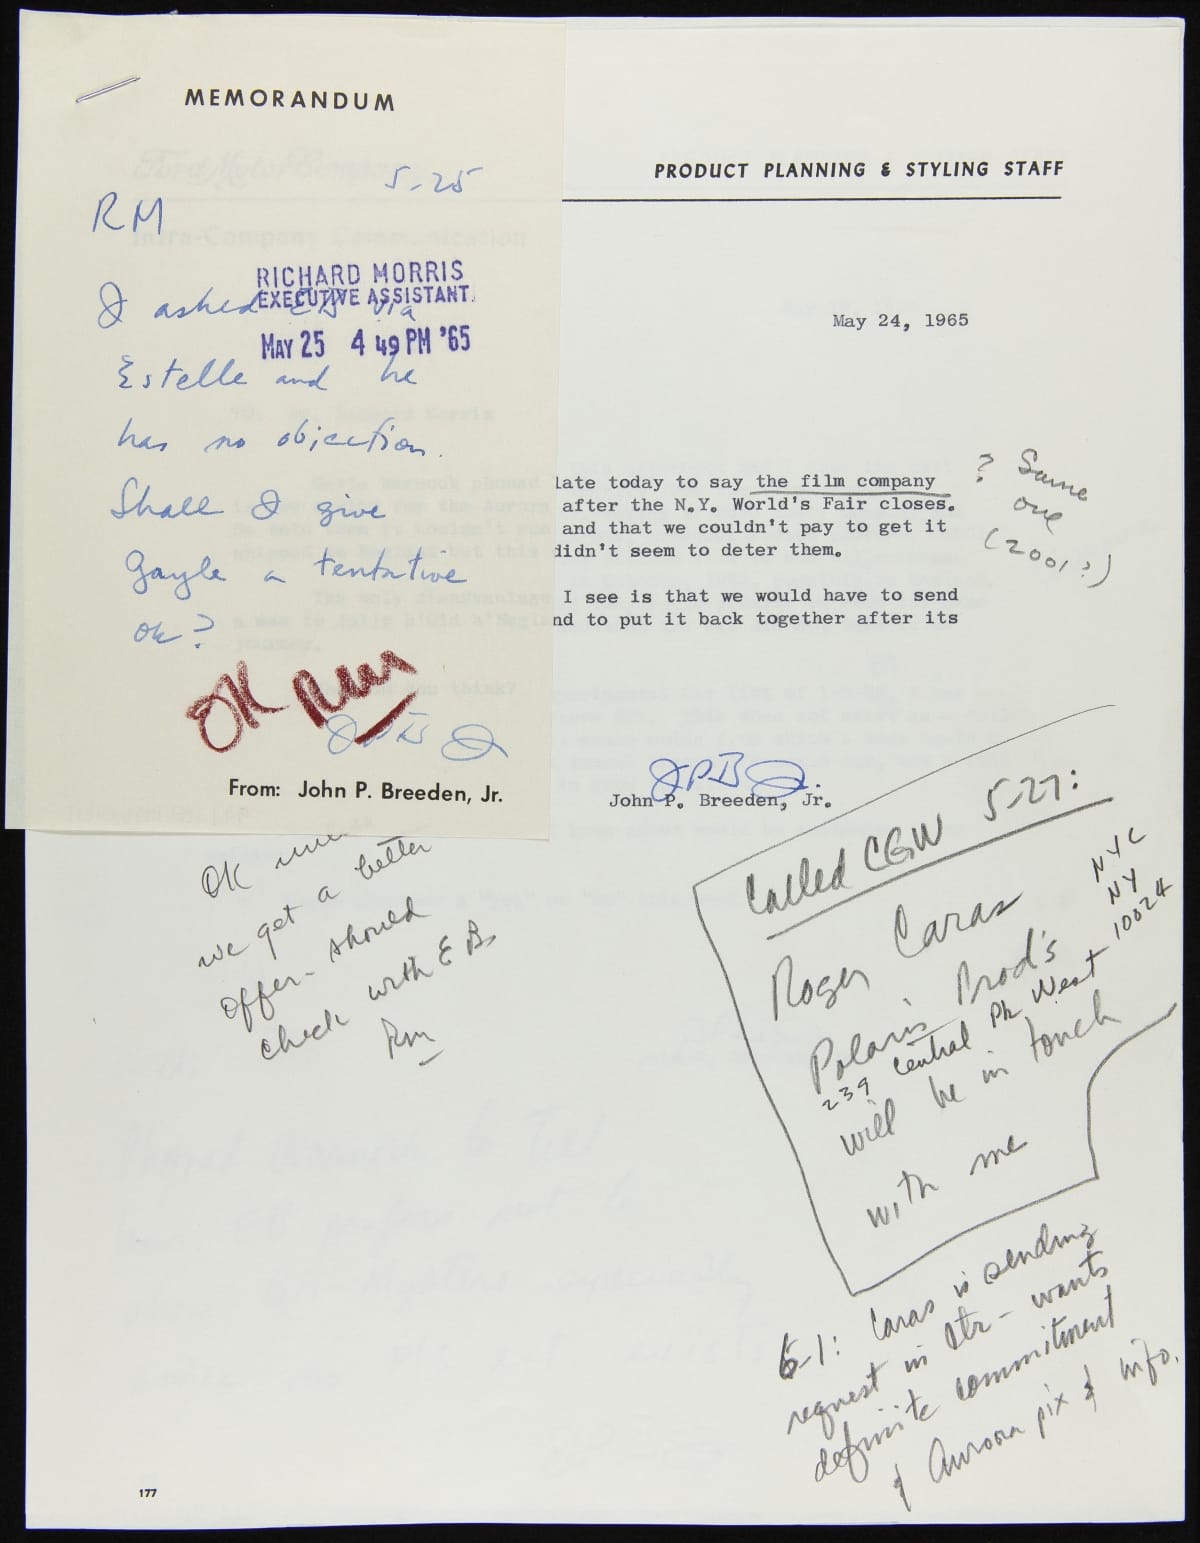 MEMORANDUM
5-25
RM
RICHARD MORRIS
EXECUTIVE ASSISTANT
MAY 25 4 49 PM '65
I asked EB via
Estelle and he
has no objection.
Shall I give
Gayle a tentative
ok?
OK RM
JPB Jr
From: John P. Breeden, Jr.
PRODUCT PLANNING & STYLING STAFF
May 24, 1965
late today to say the film company
after the N.Y. World's Fair closes.
and that we couldn't pay to get it
didn't seem to deter them.
? Same
one
(2001?)
I see is that we would have to send
nd to put it back together after its
JPB Jr.
John P. Breeden, Jr.
OK
we get a better
offer - should
check with EB
RM
Called CGW 5-27:
Roger Caras
Polaris Prod's
239 Central Pk West
NYC
NY
10024
will be in touch
with me
6-1: Caras is sending
request in ltr - wants
definite commitment
& Aurora pix & info.
177